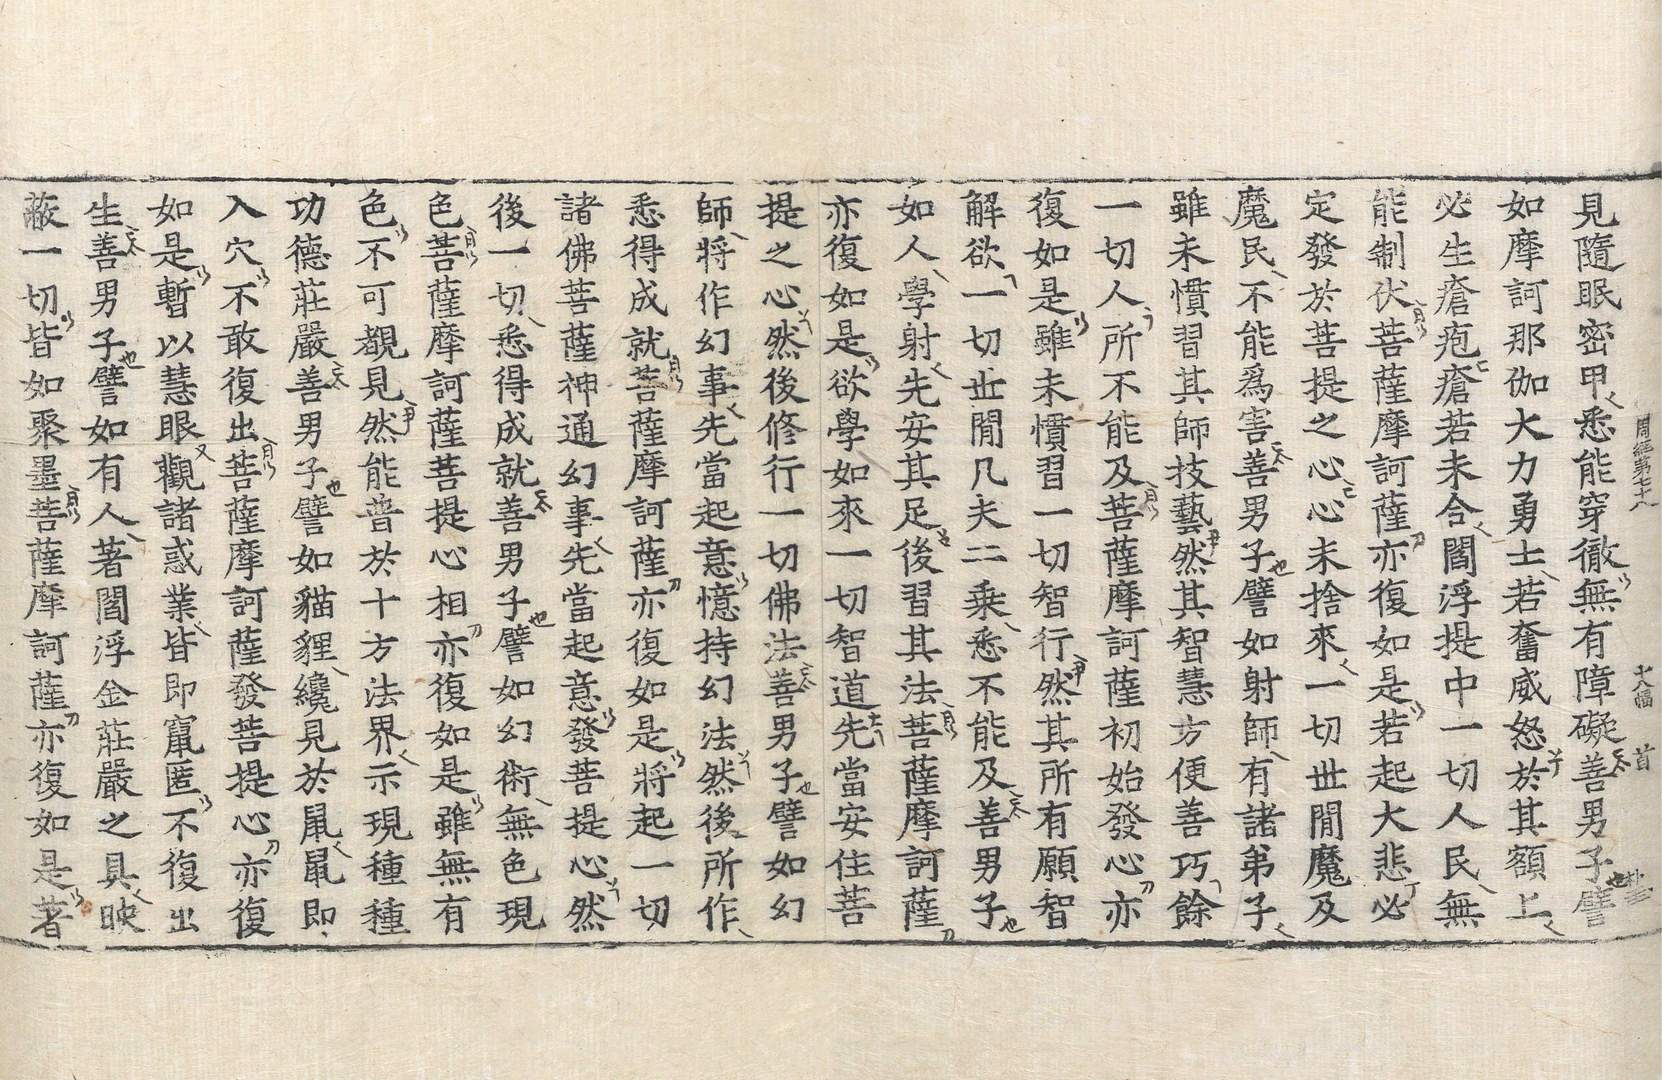 見隨眠密甲悉能穿徹無有障礙善男子譬
如摩訶那伽大力勇士若奮威怒於其額上
必生瘡疱瘡若未合閻浮提中一切人民無
能制伏菩薩摩訶薩亦復如是若起大悲必
定發於菩提之心心未捨來一切世間魔及
魔民不能為害善男子譬如射師有諸弟子
雖未慣習其師技藝然其智慧方便善巧餘
一切人所不能及菩薩摩訶薩初始發心亦
復如是雖未慣習一切智行然其所有願智
解欲一切世間凡夫二乘悉不能及善男子
如人學射先安其足後習其法菩薩摩訶薩
亦復如是欲學如來一切智道先當安住菩
提之心然後修行一切佛法善男子譬如幻
師將作幻事先當起意憶持幻法然後所作
悉得成就菩薩摩訶薩亦復如是將起一切
諸佛菩薩神通幻事先當起意發菩提心然
後一切悉得成就善男子譬如幻術無色現
色菩薩摩訶薩菩提心相亦復如是雖無有
色不可覩見然能普於十方法界示現種種
功德莊嚴善男子譬如貓貍纔見於鼠鼠即
入穴不敢復出菩薩摩訶薩發菩提心亦復
如是暫以慧眼觀諸惑業皆即竄匿不復出
生善男子譬如有人著閻浮金莊嚴之具映
蔽一切皆如聚墨菩薩摩訶薩亦復如是著